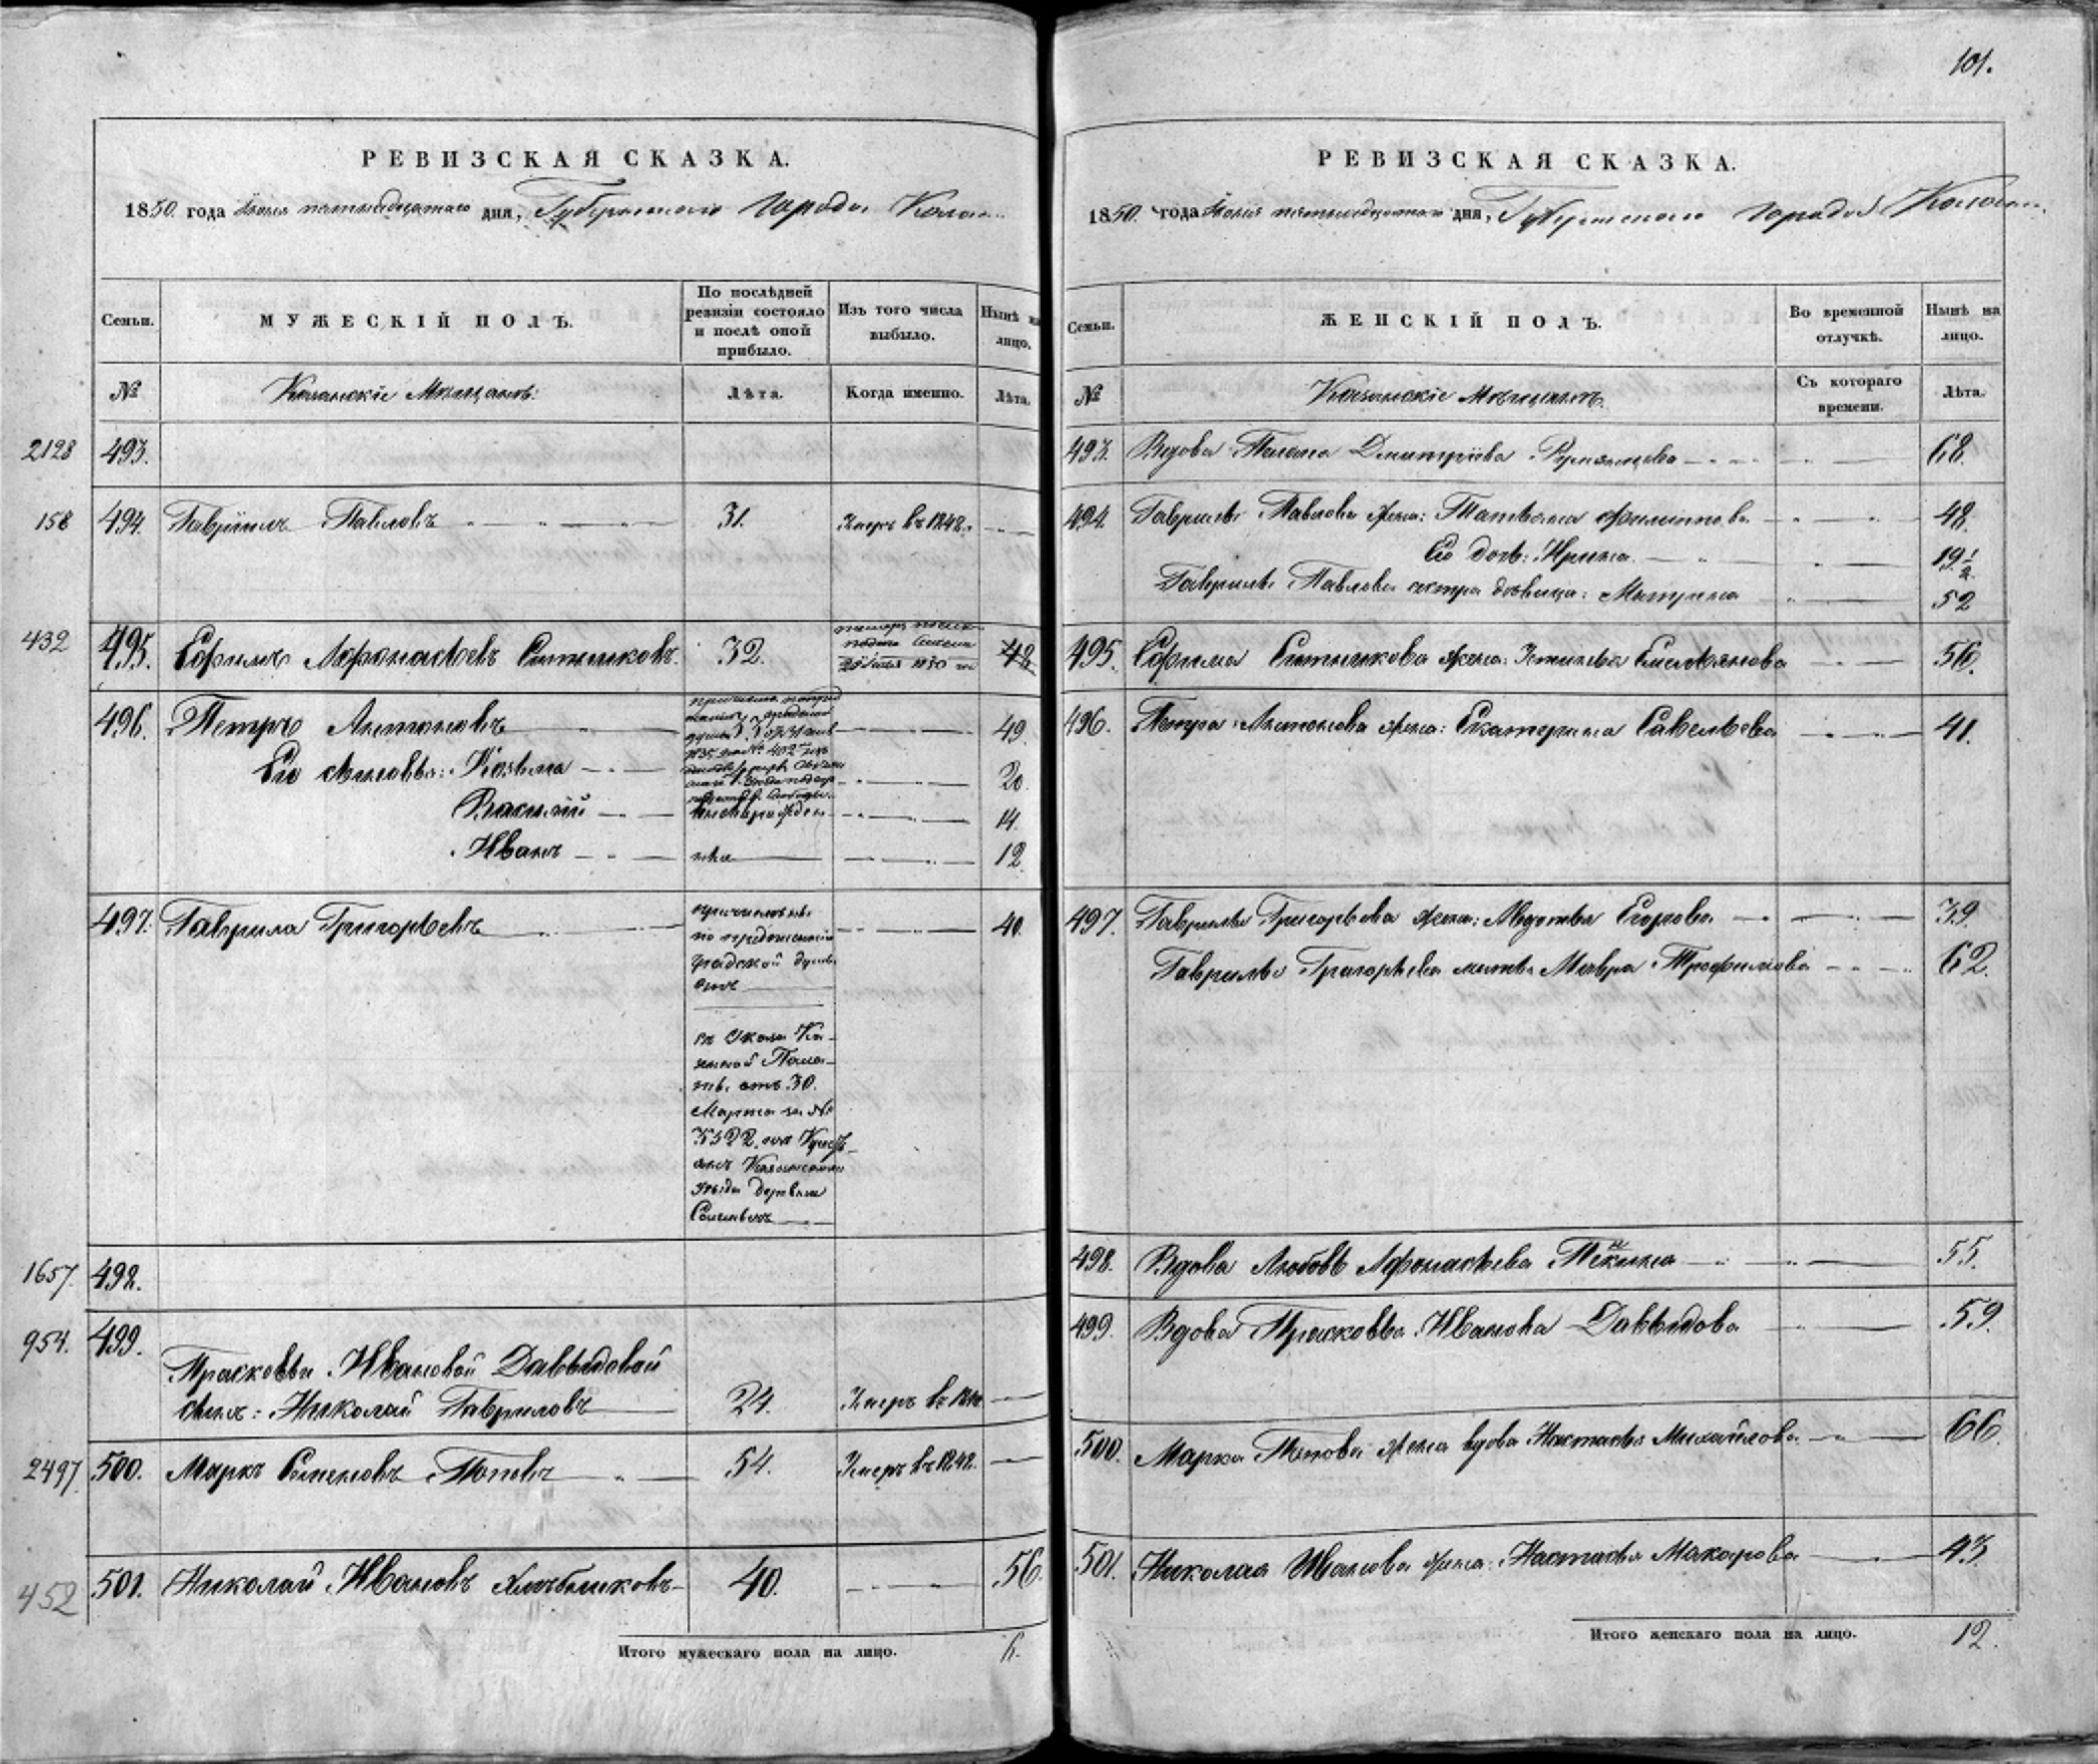 101.
РЕВИЗСКАЯ СКАЗКА.
1850. года Іюля пятнадцатаго дня, Губернскаго Города Казан
Семьи.
МУЖЕСКІЙ ПОЛЪ.
По послѣдней ревизіи состояло и послѣ оной прибыло.
Изъ того числа выбыло.
Нынѣ на лицо.
№
Казанскіе Мѣщане:
Лѣта.
Когда именно.
Лѣта.
2128 493.
158 494. Гавріилъ Павловъ 31. Умеръ въ 1848.
432 495. Ефимъ Афонасьевъ Ситниковъ. 32. 48
496. Петръ Антоновъ 49.
Его сыновья: Козьма 20.
Василій 14.
Иванъ 12
497. Гаврила Григорьевъ 40.
причисленъ
по предложенію
градской думы
отъ
въ Указа Ка-
зенной Пала-
ты отъ 30.
Марта за №
3522. изъ
Казанскаго
уѣзда деревни
1657. 498.
954. 499.
Прасковьи Ивановой Давыдовой
сынъ: Николай Гавриловъ 24. Умеръ въ
2497 500. Маркъ Семеновъ Поповъ 54. Умеръ въ 1848.
452 501. Николай Ивановъ Хлѣбниковъ 40. 56.
Итого мужескаго пола на лицо. 6.
РЕВИЗСКАЯ СКАЗКА.
1850. года Іюля пятнадцатаго дня, Губернскаго Города Казани
Семьи.
ЖЕНСКІЙ ПОЛЪ.
Во временной отлучкѣ.
Нынѣ на лицо.
№
Казанскіе Мѣщане.
Съ котораго времени.
Лѣта.
493. Вдова Дмитріева Румянцева 68.
494. Гаврилы Павлова жена: Татьяна Филиппова 48.
Его дочь: Ирина 19 1/2
Гаврилы Павлова сестра дѣвица: Матрена 52
495. Ефима Ситникова жена: Устинья Емельянова 56.
496. Петра Антонова жена: Екатерина Савельева 41.
497. Гаврилы Григорьева жена: Авдотья Егорова 39.
Гаврилы Григорьева мать Мавра Трофимова 62.
498. Вдова Любовь Афонасьева 55.
499. Вдова Прасковья Иванова Давыдова 59.
500. Марка Попова жена вдова Настасья Михайлова 66.
501. Николая Иванова жена: Настасья Макарова 43.
Итого женскаго пола на лицо. 12.